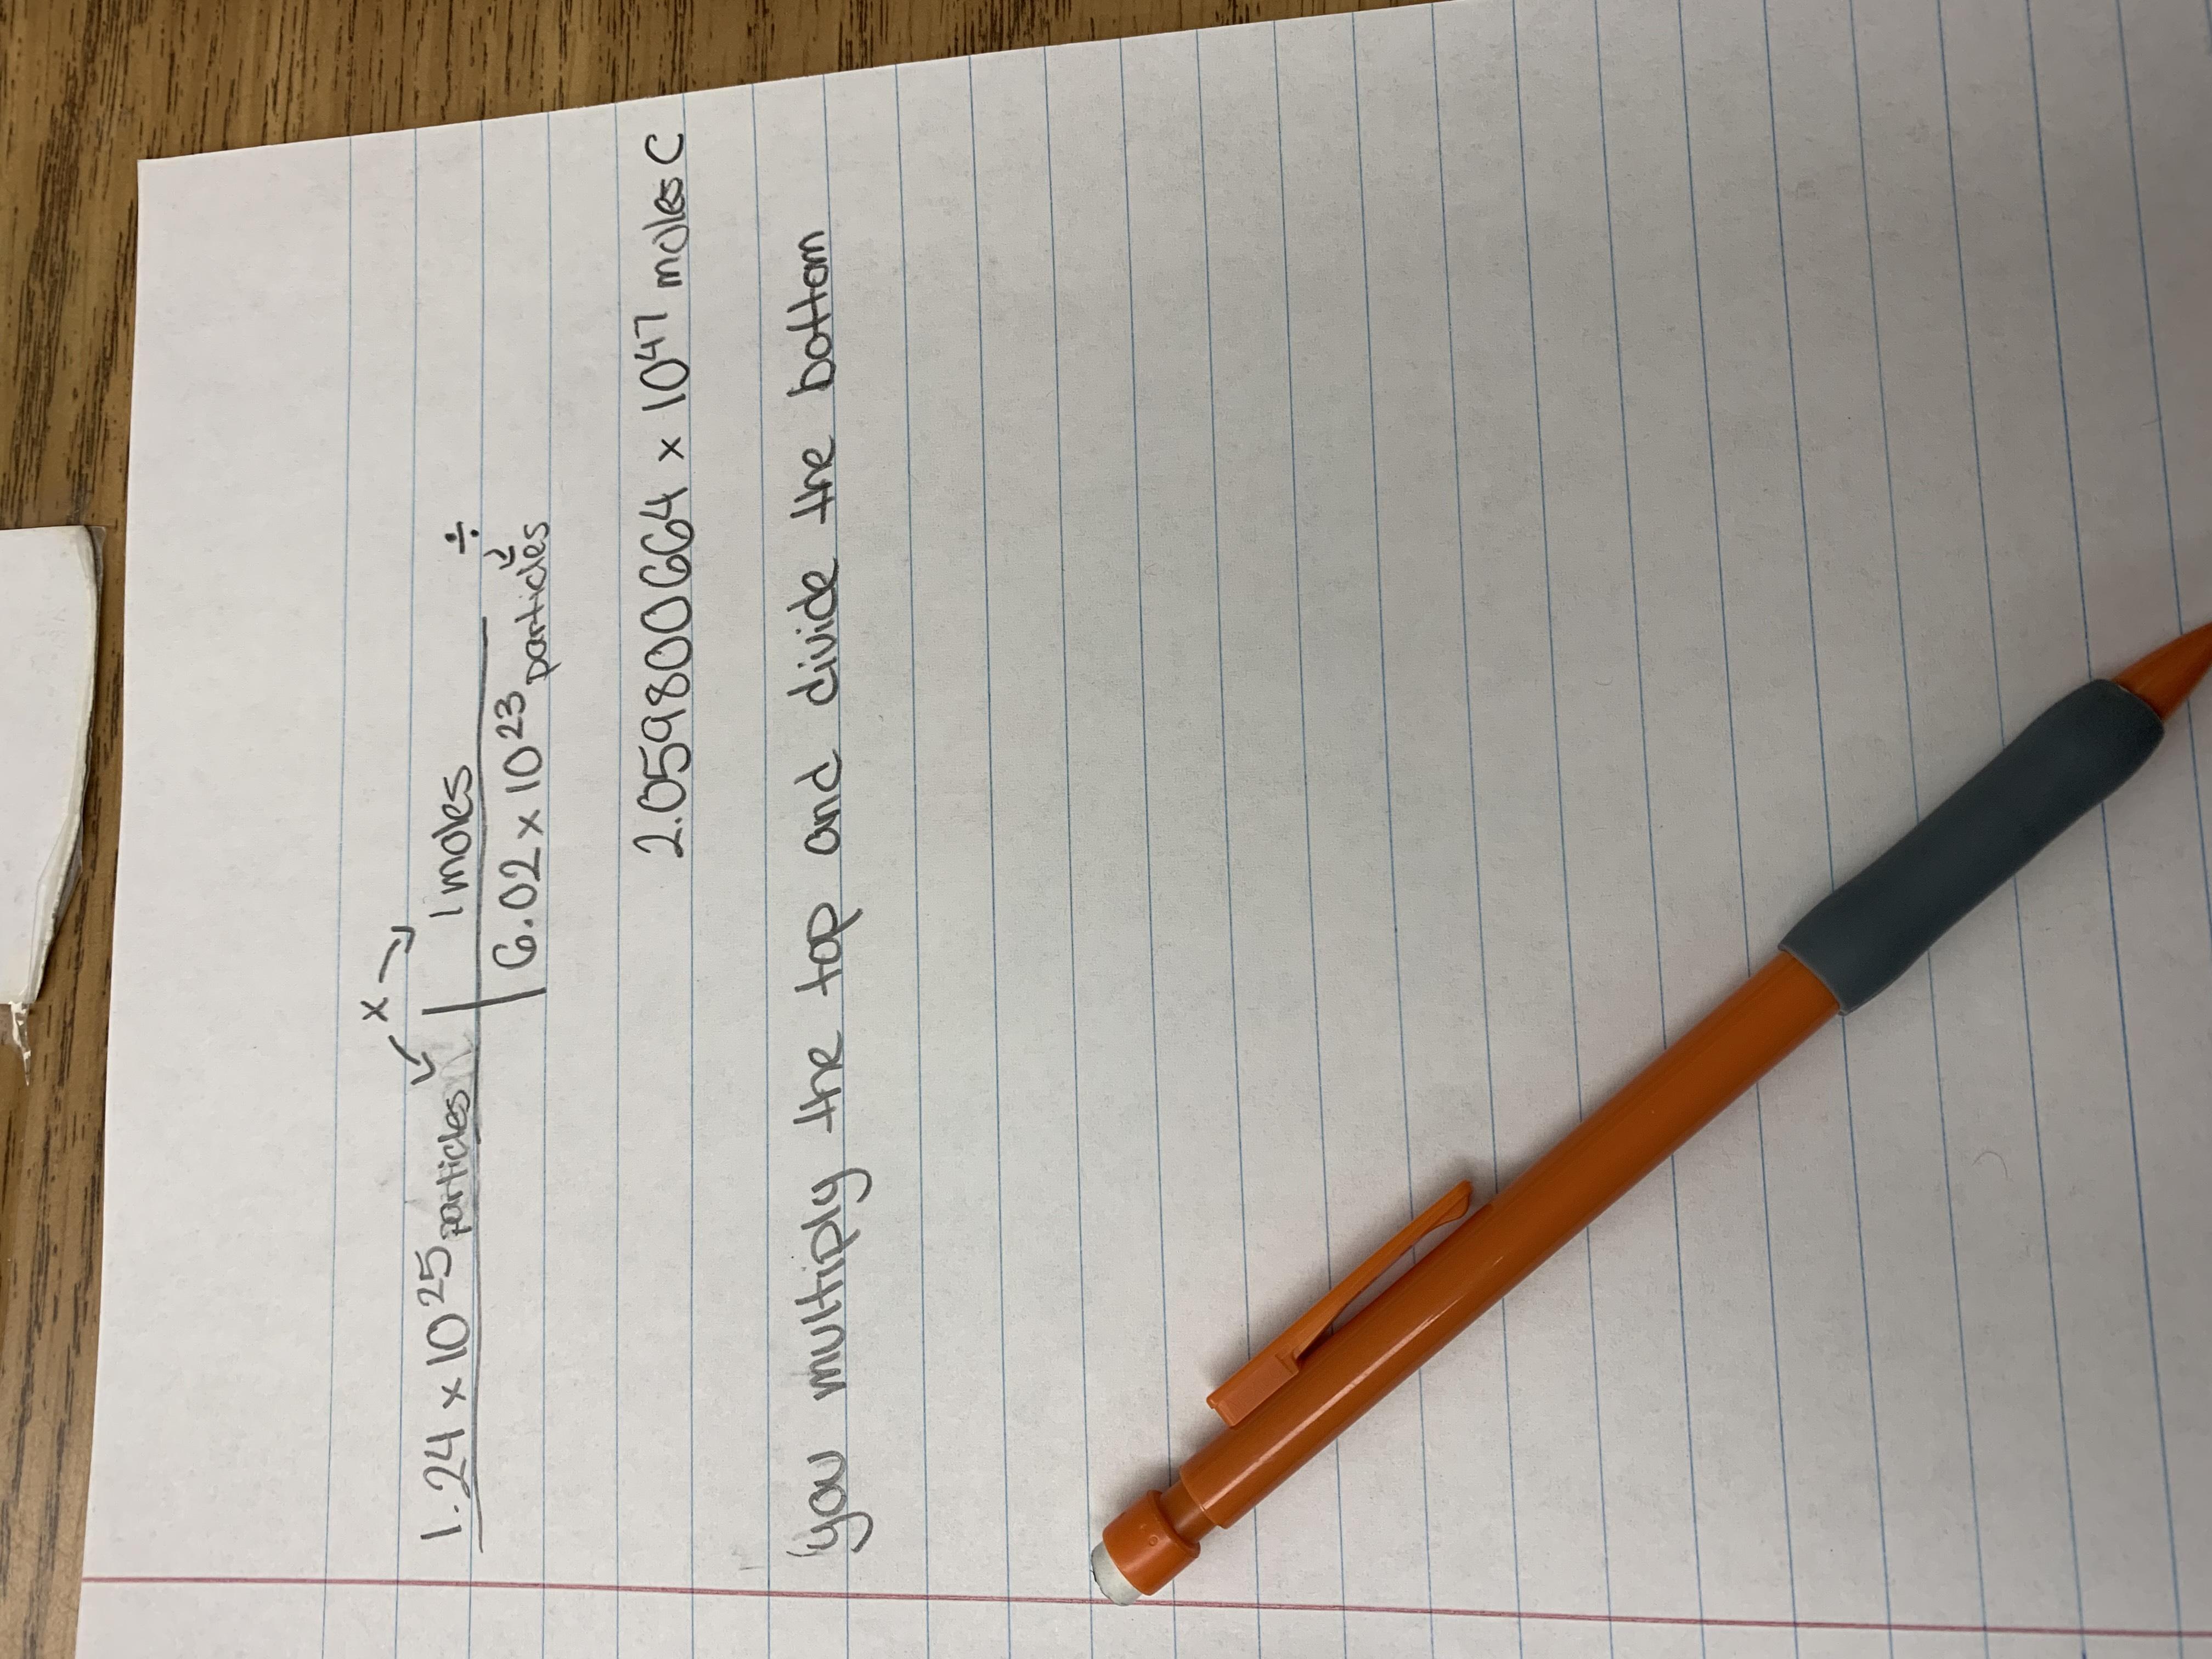 x
1.24 x 10²⁵ particles | 1 moles
6.02 x 10²³ particles ÷
2.0598006 64 x 10⁴⁷ moles C
you multiply the top and divide the bottom